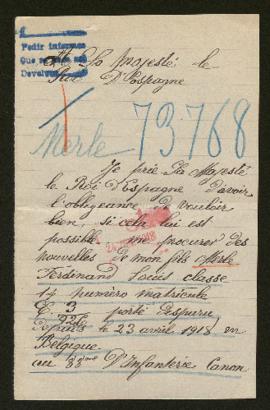 Pedir informes
Que se
Devolver
A Sa Majesté le
Roi D'Espagne
73768
Merle
Je prie Sa Majesté
le Roi d'Espagne d'avoir
l'obligeance de vouloir
bien, si cela lui est
possible me procurer des
nouvelles de mon fils Merle
Ferdinand Louis classe
17 numéro matricule
porté disparu
depuis le 23 avril 1918 en
Belgique
au D'Infanterie Canon